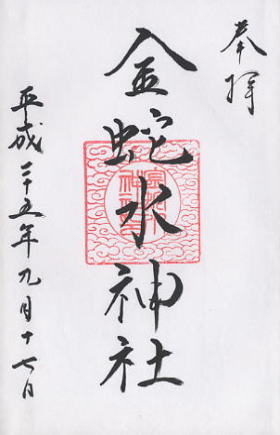 奉拝
金蛇水神社
平成二十五年九月十七日